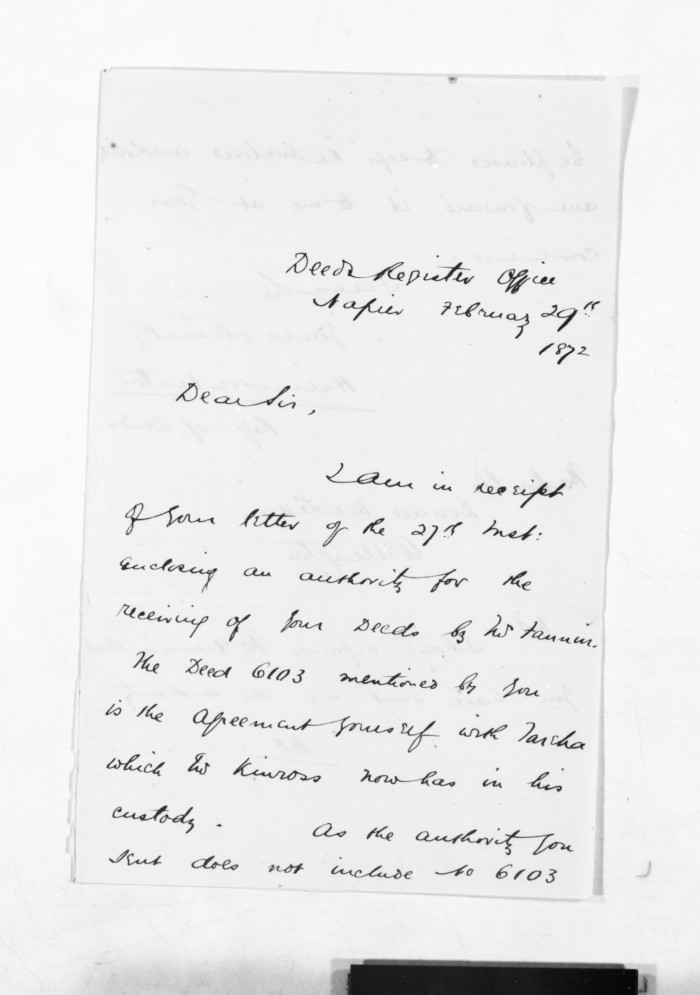 Deeds Register Office
Napier February 29th
1872
Dear Sir,
I am in receipt
of your letter of the 27th Inst:
enclosing an authority for the
receiving of your Deeds by Mr Fannin.
The Deed 6103 mentioned by you
is the Agreement yourself with Tareha
which Mr Kinross now has in his
custody. As the authority you
sent does not include No 6103